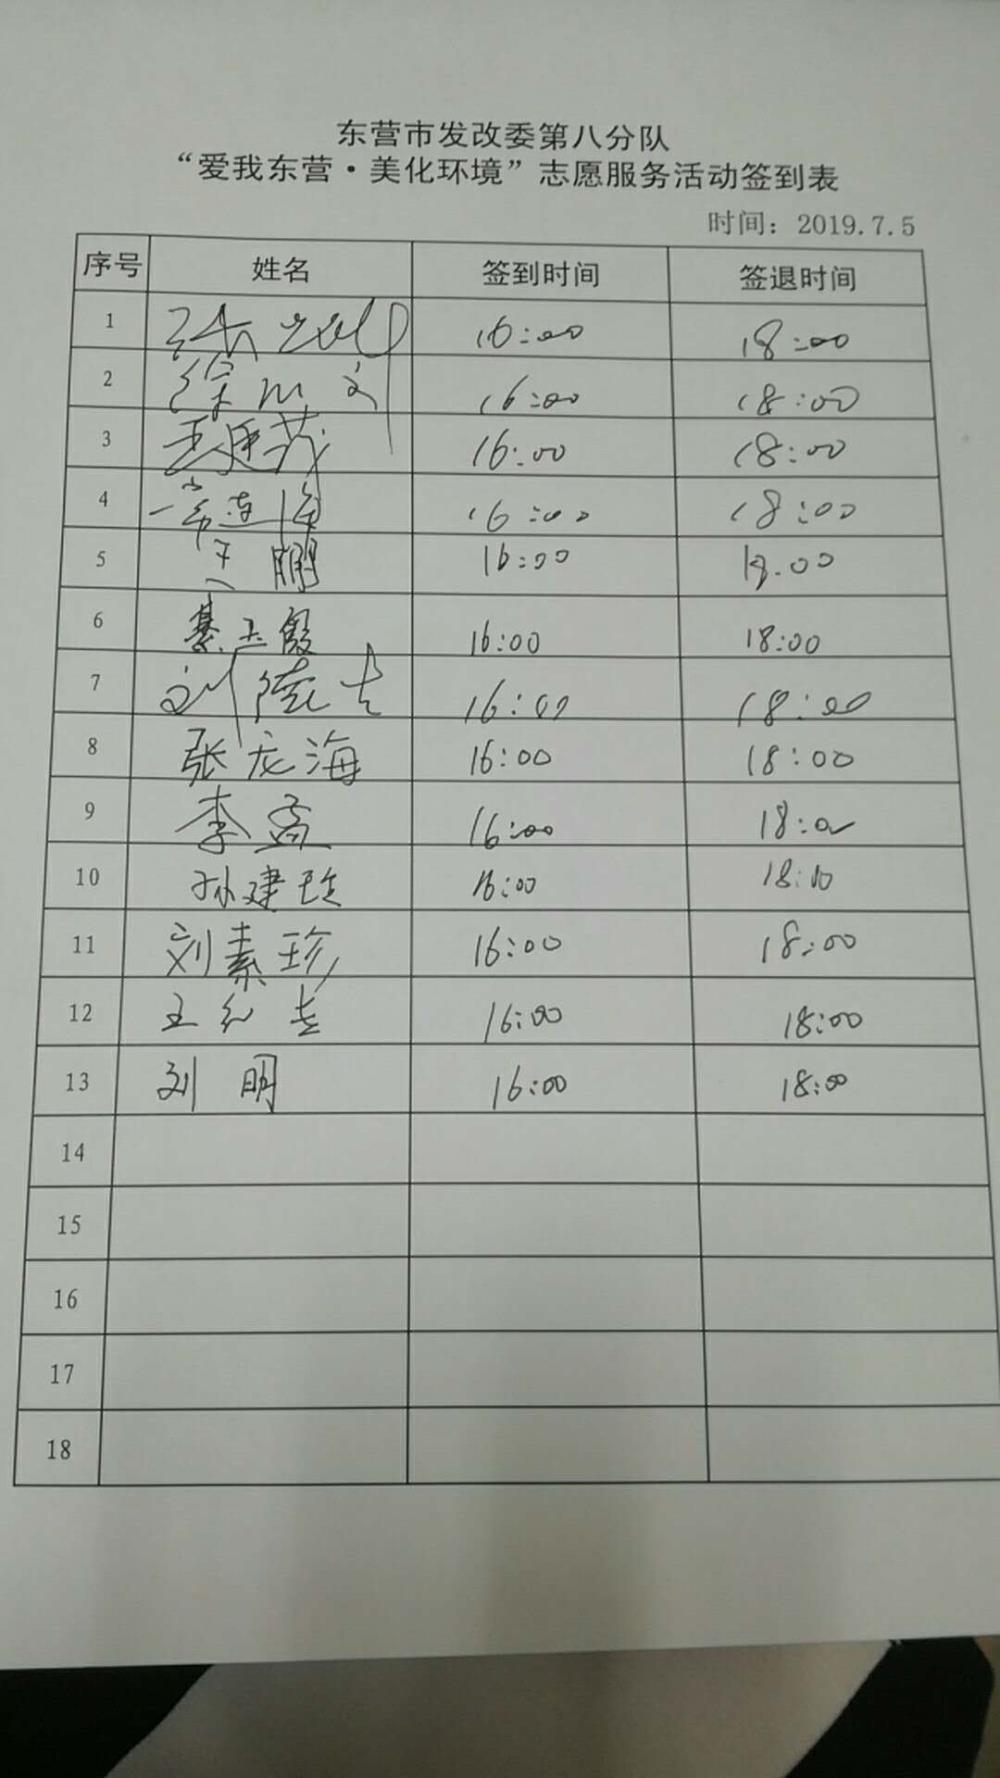 东营市发改委第八分队
“爱我东营·美化环境”志愿服务活动签到表
时间：2019.7.5
序号 姓名 签到时间 签退时间
1 16:00 18:00
2 16:00 18:00
3 王廷茂 16:00 18:00
4 16:00 18:00
5 王鹏 16:00 18:00
6 綦玉霞 16:00 18:00
7 刘德吉 16:00 18:00
8 张龙海 16:00 18:00
9 李孟 16:00 18:00
10 孙建 16:00 18:00
11 刘素珍 16:00 18:00
12 王红 16:00 18:00
13 刘明 16:00 18:00
14
15
16
17
18